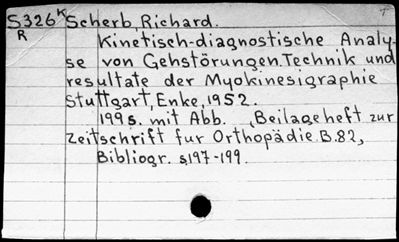 S326K Scherb, Richard.
R Kinetisch-diagnostische Analy-
se von Gehstörungen. Technik und
resultate der Myokinesigraphie
Stuttgart, Enke, 1952.
199 s. mit Abb. (Beilageheft zur
Zeitschrift fur Orthopädie. B.82,
Bibliogr. s197-199.